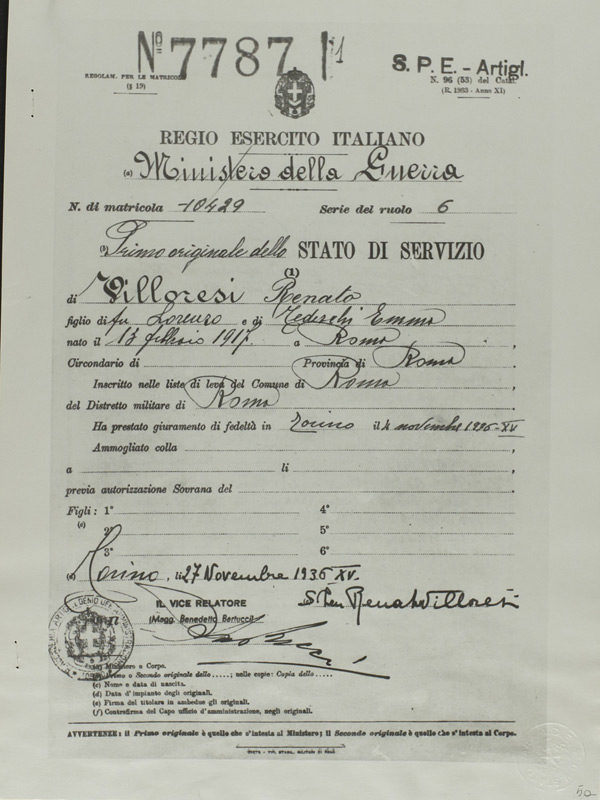 No 7787 1
REGOLAM. PER LE MATRICOLE
(§ 19)
S. P. E. - Artigl.
N. 96 (53) del Catal.
(R. 1933 - Anno XI)
REGIO ESERCITO ITALIANO
(a) Ministero della Guerra
N. di matricola 10429 Serie del ruolo 6
(b) Primo originale dello STATO DI SERVIZIO
(1)
di Villoresi Renato
figlio di fu Lorenzo e di Tedeschi Emma
nato il 13 febbraio 1917 a Roma
Circondario di Provincia di Roma
Inscritto nelle liste di leva del Comune di Roma
del Distretto militare di Roma
Ha prestato giuramento di fedeltà in Torino il 4 novembre 1936-XV
Ammogliato colla
a li
previa autorizzazione Sovrana del
Figli: 1° 4°
(c)
2° 5°
3° 6°
Torino, li 27 Novembre 1936 XV.
IL VICE RELATORE
S. Ten Renato Villoresi
(Magg. Benedetto Bertucci)
(a) Ministero o Corpo.
(b) Primo o Secondo originale dello .....; nelle copie: Copia dello ....
(c) Nome e data di nascita.
(d) Data d'impianto degli originali.
(e) Firma del titolare in ambedue gli originali.
(f) Controfirma del Capo ufficio d'amministrazione, negli originali.
AVVERTENZE: il Primo originale è quello che s'intesta al Ministero; il Secondo originale è quello che s'intesta al Corpo.